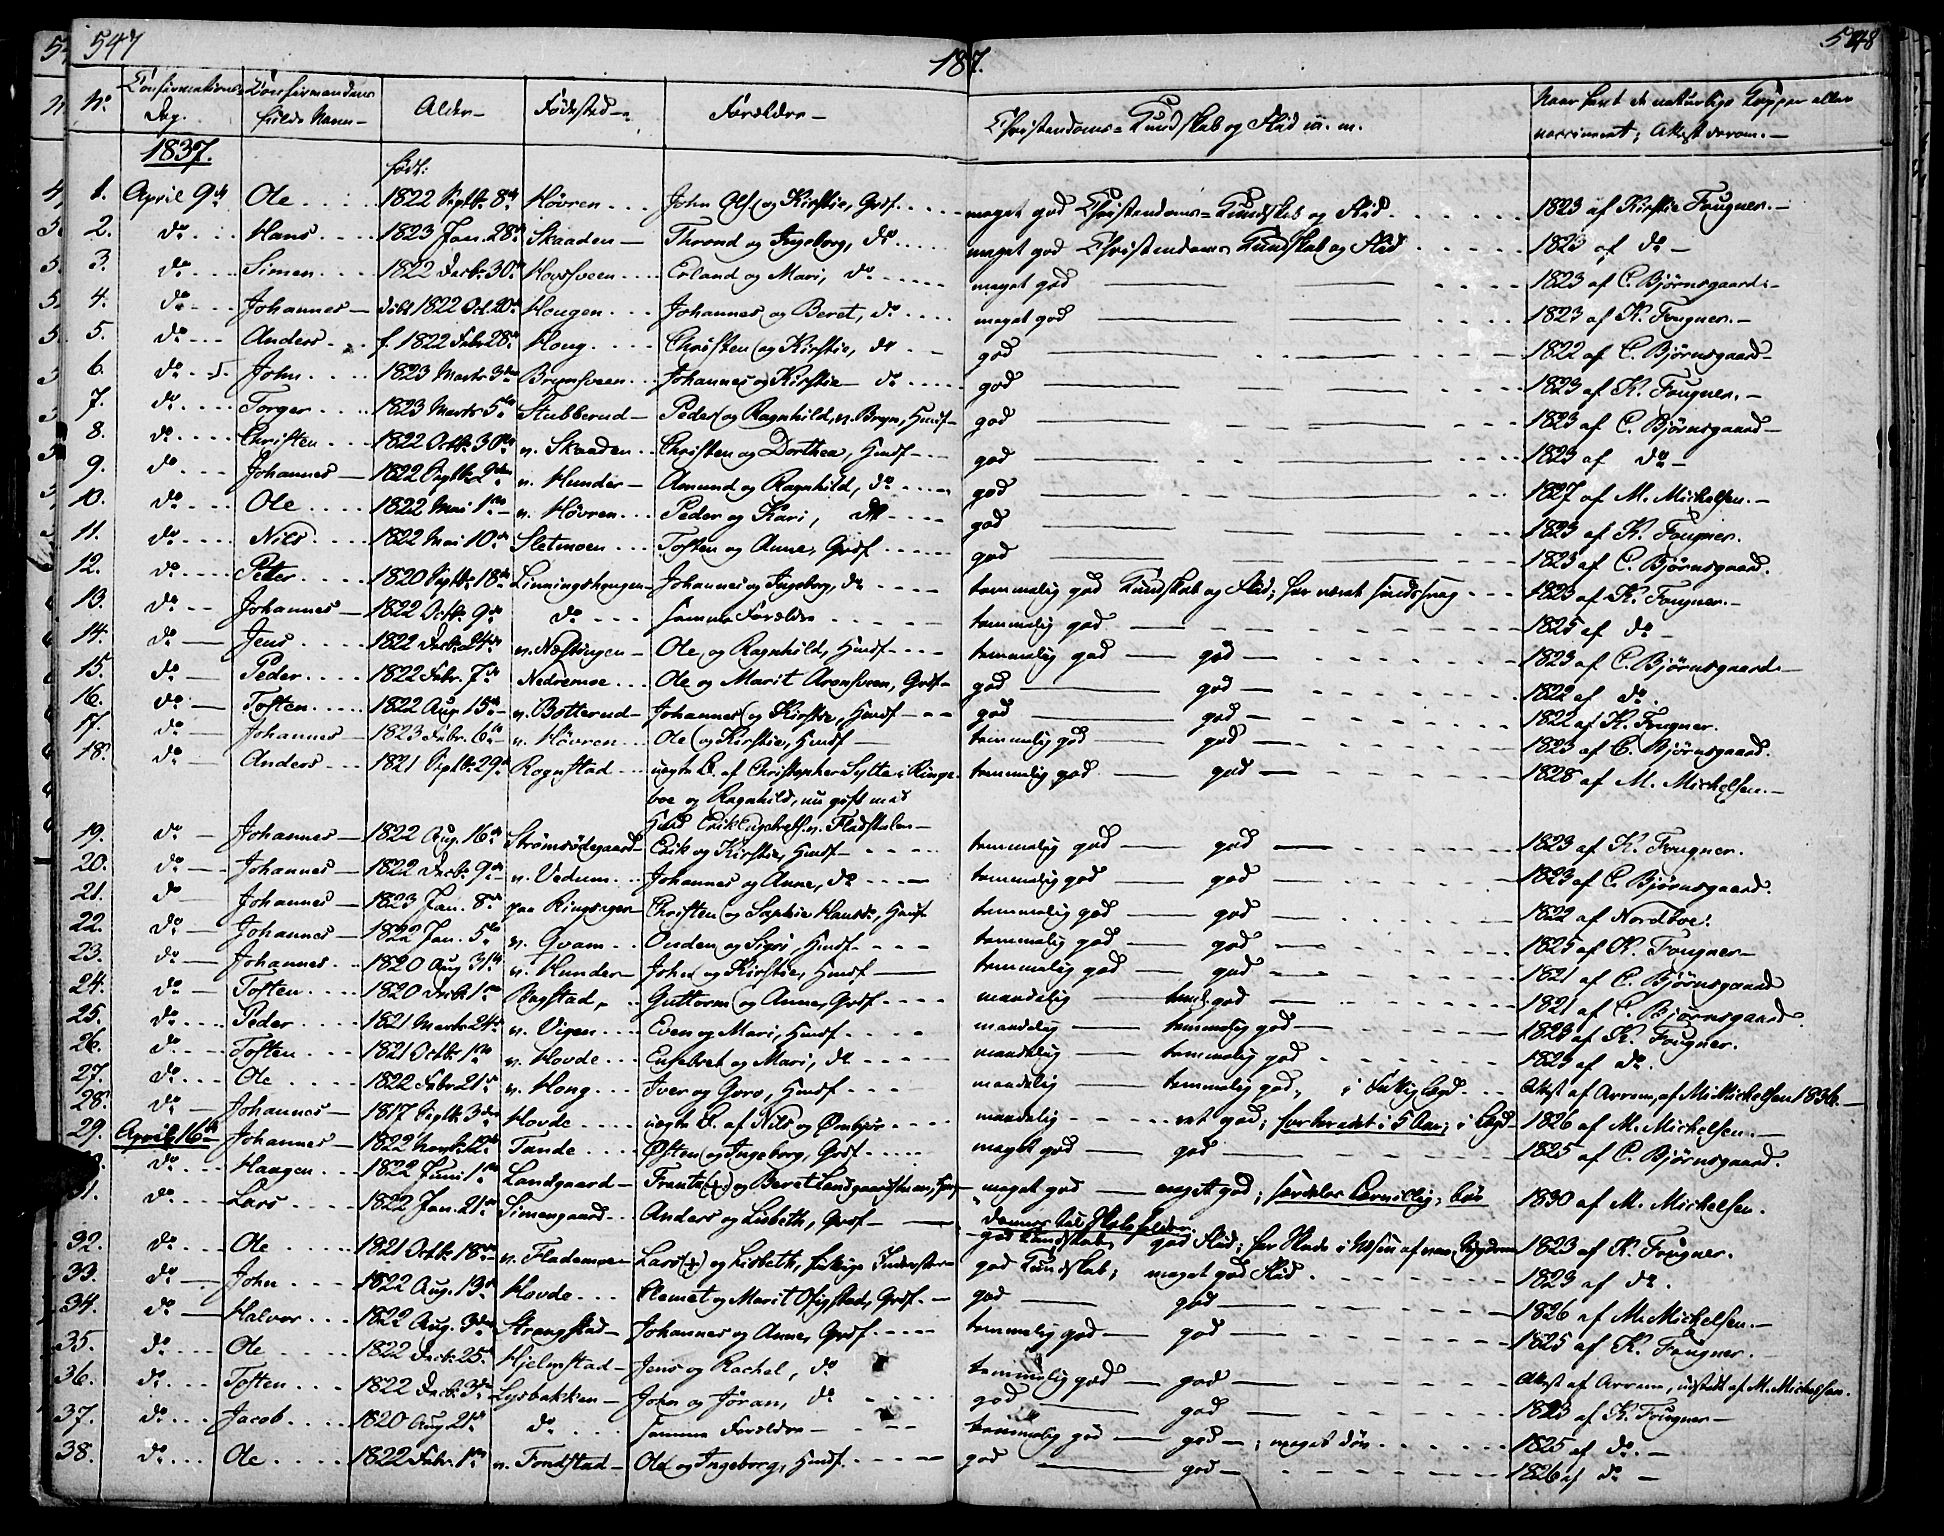 547
187.
548
No. Confirmations= Dag. Confirmandens fulde Navn — Alder — Fødested — Forældre — Christendoms= Kundskab og Flid m. m. Naar havt de naturlige Kopper eller vaccineret; Attest derom. —
1837. født:
1. April 9de Ole 1822 Septb. 8de Høvren John Ols. og Kirstie, Grdf. meget god Christendoms= Kundskab og Flid. 1823 af Kirstie Fougner. —
2. do Hans 1823 Jan. 28de Skaaden — Thrond og Ingeborg, do meget god Christendoms Kundskab og Flid 1823 af do —
3. do Simen 1822 Decbr. 30te Hovsveen Erland og Mari, do meget god 1823 af C. Bjørnsgaard. —
4. do Johannes — døbt 1822 Oct. 20de Hougen Johannes og Beret, do meget god 1823 af K. Fougner. —
5. do Anders f. 1822 Febr 28de Houg Christen og Kirstie, do god 1822 af C. Bjørnsgaard —
6. do John 1823 Marts 3die Brynsveen Johannes og Kirstie — do god 1823 af K. Fougner. —
7. do Torger 1823 Marts 5te Stubberud — Peder og Ragnhild, v. Bryn, Husf — god 1823 af C. Bjørnsgaard —
8. do Christen 1822 Octb. 30te v. Skaaden Christen og Dorthea, Husf — god 1823 af do —
9. do Johannes — 1822 Septb. 2den v. Hunder — Amund og Ragnhild, do god 1827 af M. Mickelsen. —
10. do Ole 1822 Mai 1ste v. Høvren Peder og Kari, do god 1823 af K. Fougner.
11. do Nils 1822 Mai 10de Sletmoen Tosten og Anne, Grdf god 1823 af C. Bjørnsgaard.
12. do Petter 1820 Septb. 18de Linningshougen — Johannes og Ingeborg, do temmelig god Kundskab og Flid; har været sindssvag 1823 af K. Fougner. —
13. do Johannes — 1822 Octb. 9de do samme Forældre temmelig god 1825 af do —
14. do Jens 1822 Decb. 24de v. Næstingen — Ole og Ragnhild, Husf temmelig god — god 1823 af C. Bjørnsgaard. —
15. do Peder 1822 Febr. 7de Nedremoe Ole og Marit Aronsveen, Grdf — god god 1822 af do.
16. do Tosten 1822 Aug. 15de v. Botterud — Johannes og Kirstie, Husf god god 1822 af K. Fougner.
17. do Johannes — 1823 Febr. 6te v. Høvren Ole og Kirstie, Husf — temmelig god — god 1823 af C. Bjørnsgaard.
18. do Anders 1821 Septb. 29de Rognstad uægte B. af Christopher Sylte i Ringe= temmelig god god 1828 af M. Mickelsen. —
boe og Ragnhild, nu gift med
Husf Erik Engebrets. v. Fladstulen —
19. do Johannes — 1822 Aug. 16de Strømsødegaard — Erik og Kirstie, Husf — temmelig god god 1823 af K. Fougner.
20. do Johannes — 1822 Decb. 9de v. Vedum Johannes og Anne, do temmelig god god 1823 af C. Bjørnsgaard.
21. do Johannes — 1823 Jan. 8de paa Ringvigen Christen og Sophie Hansd., Husf temmelig god god 1822 af Nordboe.
22. do Johannes — 1822 Jan. 5te v. Qvam Ouden og Sigri, Husf. temmelig god god 1825 af K. Fougner —
23. do Johannes 1820 Aug 31te v. Hunder — John og Kirstie, Husf — temmelig god god 1821 af C. Bjørnsgaard
24. do Tosten 1820 Decb. 1ste Rogstad, Guttorm og Anne, Grdf maadelig temmel. god 1821 af C. Bjørnsgaard.
25. do Peder 1821 Marts 24de v. Vigen Even og Mari, Husf. maadelig temmelig god 1823 af K. Fougner.
26. do Tosten 1821 Octb. 1ste v. Hovde Engebret og Mari, do maadelig temmelig god 1823 af do.
27. do Ole 1822 Febr. 21de v. Houg Iver og Goro, Husf maadelig temmelig god, i Fattiglægd. Attest af Arrem, af M. Mickelsen 1836. —
28. do Johannes — 1817 Septb. 3die Hovde uægte B. af Nils og maadelig ret god; forberedet i 5 Aar; i Lægd 1826 af M. Mickelsen. —
29. April 16de Johannes — 1822 Tande Østen og Ingeborg, Grdf meget god god 1825 af C. Bjørnsgaard.
do Haagen 1822 Juni 1ste Landgaard — Frants (+) og Beret Landgaardshuus, meget god — meget god; særdeles lærvillig; bør 1830 af M. Mickelsen.
31. do Lars 1822 Jan. 21de Simengaard Anders og Lisbeth, Grdf — dannes til Skoleholder
32. do Ole 1821 Octb. 18de v. Flademoe — Lars (+) og Lisbeth, fattige Inderster — god Kundskab, god Flid; 1823 af K. Fougner.
33. do John 1822 Aug. 13de Hovde Clemet og Marit Ofigstad, Grdf. — god Kundskab; meget god Flid 1823 af do.
34. do Halvor 1822 Aug. 3die Strangstad — Johannes og Anne, Grdf god god 1826 af M. Mickelsen. —
35. do Ole 1822 Decb. 25de Hjelmstad — Jens og Rachel, do temmelig god god 1825 af K. Fougner.
36. do Tosten 1822 Decb. 3die Lysbakken — John og Jøran, do temmelig god god Attest af Arrem, udstedt af M. Mickelsen.
37. do Jacob 1820 Aug. 21de do samme Forældre god god 1823 af K. Fougner —
38. do Ole 1822 Febr. 1ste v. Fondstad — Ole og Ingeborg, Husf temmelig god — god —; meget døv 1825 af do. —
god god 1826 af do —